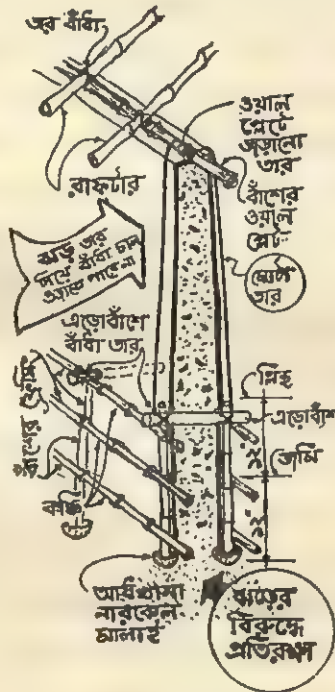 তার বাঁধা
ওয়াল
প্লেটে
জড়ানো
তার
রাফটার
বাঁশের
ওয়াল
প্লেট
ঝড় তার
দিয়ে বাঁধা চাল
পারে না
মোটা
তার
এড়োবাঁশে
বাঁধা তার
প্লিন্থ
এড়োবাঁশ
জমি
বাঁশের খুঁটি
কঞ্চি
আধখানা
নারকেল
মালাই
ঝড়ের
বিরুদ্ধে
প্রতিরক্ষা